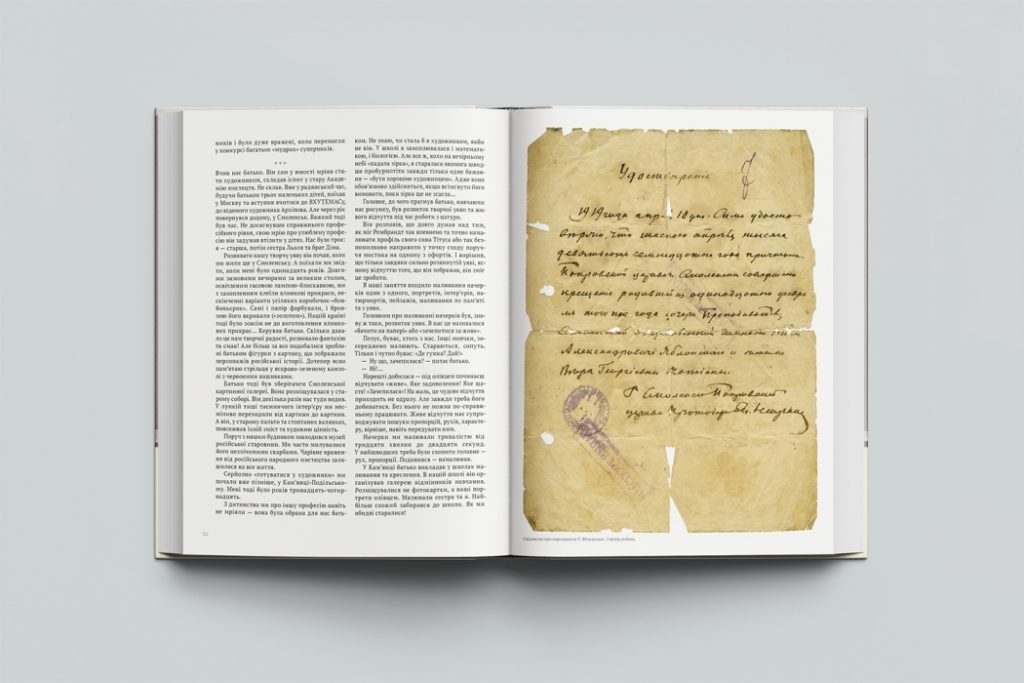 жників і були дуже вражені, коли перемогли
у конкурсі багатьох «мудрих» суперників.
* * *
Вчив нас батько. Він сам у юності мріяв ста-
ти художником, складав іспит у стару Акаде-
мію мистецтв. Не склав. Вже у радянський час,
будучи батьком трьох маленьких дітей, поїхав
у Москву та вступив вчитися до ВХУТЕМАСу,
до відомого художника Архипова. Але через рік
повернувся додому, у Смоленськ. Важкий тоді
був час. Не досягнувши справжнього профе-
сійного рівня, свою мрію про улюблену профе-
сію він задумав втілити у дітях. Нас було троє:
я — старша, потім сестра Льоля та брат Діма.
Розвивати нашу творчу уяву він почав, коли
ми жили ще у Смоленську. А поїхали ми звід-
ти, коли мені було одинадцять років. Довги-
ми зимовими вечорами за великим столом,
освітленим гасовою лампою-блискавкою, ми
з захопленням клеїли ялинкові прикраси, не-
скінченні варіанти усіляких коробочок-«бон-
боньєрок». Самі і папір фарбували, і бронзо-
ю його вкривали («золотом»). Нашій країні
тоді було зовсім не до виготовлення ялинко-
вих прикрас... Керував батько. Скільки дава-
ло це нам творчої радості, розвивало фантазію
та смак! Але більш за все подобалися зробле-
ні батьком фігурки з картону, що зображали
персонажів російської історії. Дотепер ясно
пам'ятаю стрільця у яскраво-зеленому камзо-
лі з червоними нашивками.
Батько тоді був зберігачем Смоленської
картинної галереї. Вона розміщувалася у ста-
рому соборі. Він декілька разів нас туди водив.
У лункій тиші таємничого інтер'єру ми не-
спішно переходили від картини до картини.
А він, у старому пальто та стоптаних валянках,
пояснював їхній зміст та художню цінність.
Поруч з нашим будинком знаходився музей
російської старовини. Ми часто милувалися
його незліченними скарбами. Чарівне вражен-
ня від російського народного мистецтва зали-
шилося на все життя.
Серйозно «готуватися у художники» ми
почали вже пізніше, у Кам'янці-Подільсько-
му. Мені тоді було років тринадцять-чотир-
надцять.
З дитинства ми про іншу професію навіть
не мріяли — вона була обрана для нас бать-
50
ком. Не знаю, чи стала б я художником, якби
не він. У школі я захоплювалася і математи-
кою, і біологією. Але все ж, коли на вечірньому
небі «падала зірка», я старалася якомога швид-
ше пробурмотіти завжди тільки одне бажан-
ня — «бути хорошою художницею». Адже воно
обов'язково здійсниться, якщо встигнути його
вимовити, поки зірка ще не згасла...
Головне, до чого прагнув батько, навчаючи
нас рисунку, був розвиток творчої уяви та жи-
вого відчуття під час роботи з натури.
Він розповів, що довго думав над тим,
як міг Рембрандт так впевнено та точно нама-
лювати профіль свого сина Тітуса або так без-
помилково направити у точку сходу поруч-
чя мистка на одному з офортів. І вирішив,
що тільки завдяки сильно розвинутій уяві, яс-
ному відчуттю того, що він зображав, він зміг
це зробити.
В наші заняття входило малювання начер-
ків один з одного, портретів, інтер'єрів, на-
тюрмортів, пейзажів, малювання по пам'яті
та з уяви.
Головним при малюванні начерків був, зно-
ву ж таки, розвиток уяви. В нас це називалося
«бачити на папері» або «зачепитися за живе».
Позує, буває, хтось з нас. Інші мовчки, зо-
середжено малюють. Стараються, сопуть.
Тільки і чутно буває: «Де гумка? Дай!»
— Ну що, зачепилася? — питає батько.
— Ні!...
Нарешті добилася — під олівцем починаєш
відчувати «живе». Яке задоволення! Яке ща-
стя! «Зачепилася»! На жаль, це чудове відчуття
приходить не одразу. Але завжди треба його
добиватися. Без нього не можна по-справж-
ньому працювати. Живе відчуття має супро-
воджувати пошуки пропорцій, рухів, характе-
ру, вірніше, навіть передувати ним.
Начерки ми малювали тривалістю від
тридцяти хвилин до двадцяти секунд.
У найшвидших треба було схопити головне —
рух, пропорції. Подивився — намалював.
У Кам'янці батько викладав у школах ма-
лювання та креслення. В нашій школі він ор-
ганізував галерею відмінників навчання.
Розміщувалися не фотокартки, а наші пор-
трети олівцем. Малювали сестра та я. Най-
більш схожий забирався до школи. Як ми
обидві старалися!
Удостоверение
1919 года апр. 10 дня. Сим удосто-
веряю, что
девятьсот семнадцатого года
Покровской церкви г. Смоленска совершено
крещение родившейся одиннадцатого февра-
ля того же года дочери преподавателя
Смоленской
Александровича Яблонского и жены
Веры Георгиевны Татьяны.
Г. Смоленска Покровской
церкви Протоиерей
Свідоцтво про хрещення Т. Яблонської. З архіву родини